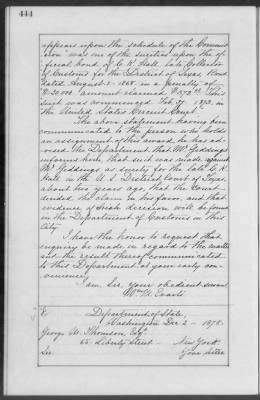 444
appears upon the schedule of the Commiss-
ion was one of the sureties upon the of-
ficial bond of C. K. Hall, late Collector
of Customs for the District of Texas, Bond
dated August 5, 1868. in a penalty of
$20.000 amount claimed This
suit was commenced Feb 1873, in
the United States Circuit Court."
The above statement having been
communicated to the person who holds
an assignment of this award, he has ad-
vised the Department that Mr Giddings
informs him that suit was made against
Mr Giddings as surety for the late C. K.
Hall in the U. S. District Court of Texas
about two years ago, that the Court
decided the claim in his favor, and that
evidence of such decision will be found
in the Department of Customs in this
City.
I have the honor to request that
inquiry be made in regard to the matter
and the result thereof communicated
to this Department at your early con-
venience.
I am Sir, your obedient servant
Wm M. Evarts
Department of State,
Washington Dec 2 - 1878.
George H. Thomson Esqr
55 Liberty Street - New York
Sir. Your letter